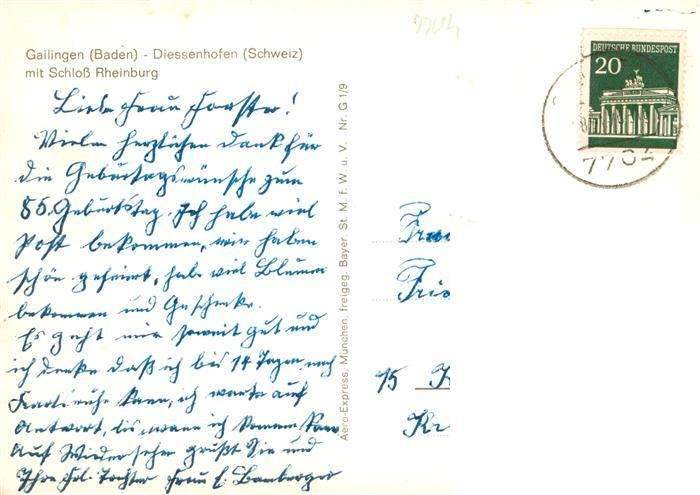 Gailingen (Baden) - Diessenhofen (Schweiz)
mit Schloß Rheinburg
Liebe Frau Forster!
Vielen herzlichen Dank für
die Geburtagswünsche zum
85. Geburtstag. Ich habe viel
Post bekommen, wir haben
schön gefeiert, habe viel Blumen
bekommen und Geschenke.
Es geht mir soweit gut und
ich denke daß ich bis 14 Tagen nach
Karlsruhe kann, ich warte auf
Antwort, bis wann ich kommen kann
Auf Wiedersehen grüßt Sie und
Ihre Frl. Tochter Frau E. Bamberger
Aero-Express, München, freigeg. Bayer. St. M. f. W. u. V. Nr. G 1/9
DEUTSCHE BUNDESPOST
20
7704
Frau
15
Kr